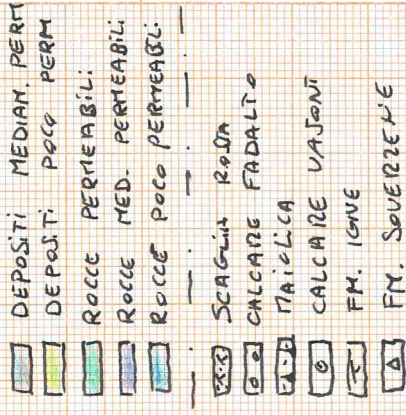 DEPOSITI MEDIAM. PERM
DEPOSITI POCO PERM
ROCCE PERMEABILI
ROCCE MED. PERMEABILI
ROCCE POCO PERMEABILI
SCAGLIA ROSSA
CALCARE FADALTO
MAIOLICA
CALCARE VAJONT
FM. IGNE
FM. SOVERZENE